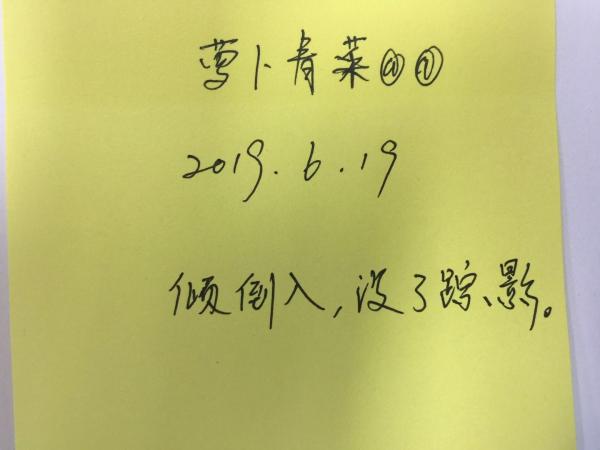 萝卜青菜@①
2019.6.19
倾倒入,没了踪影。